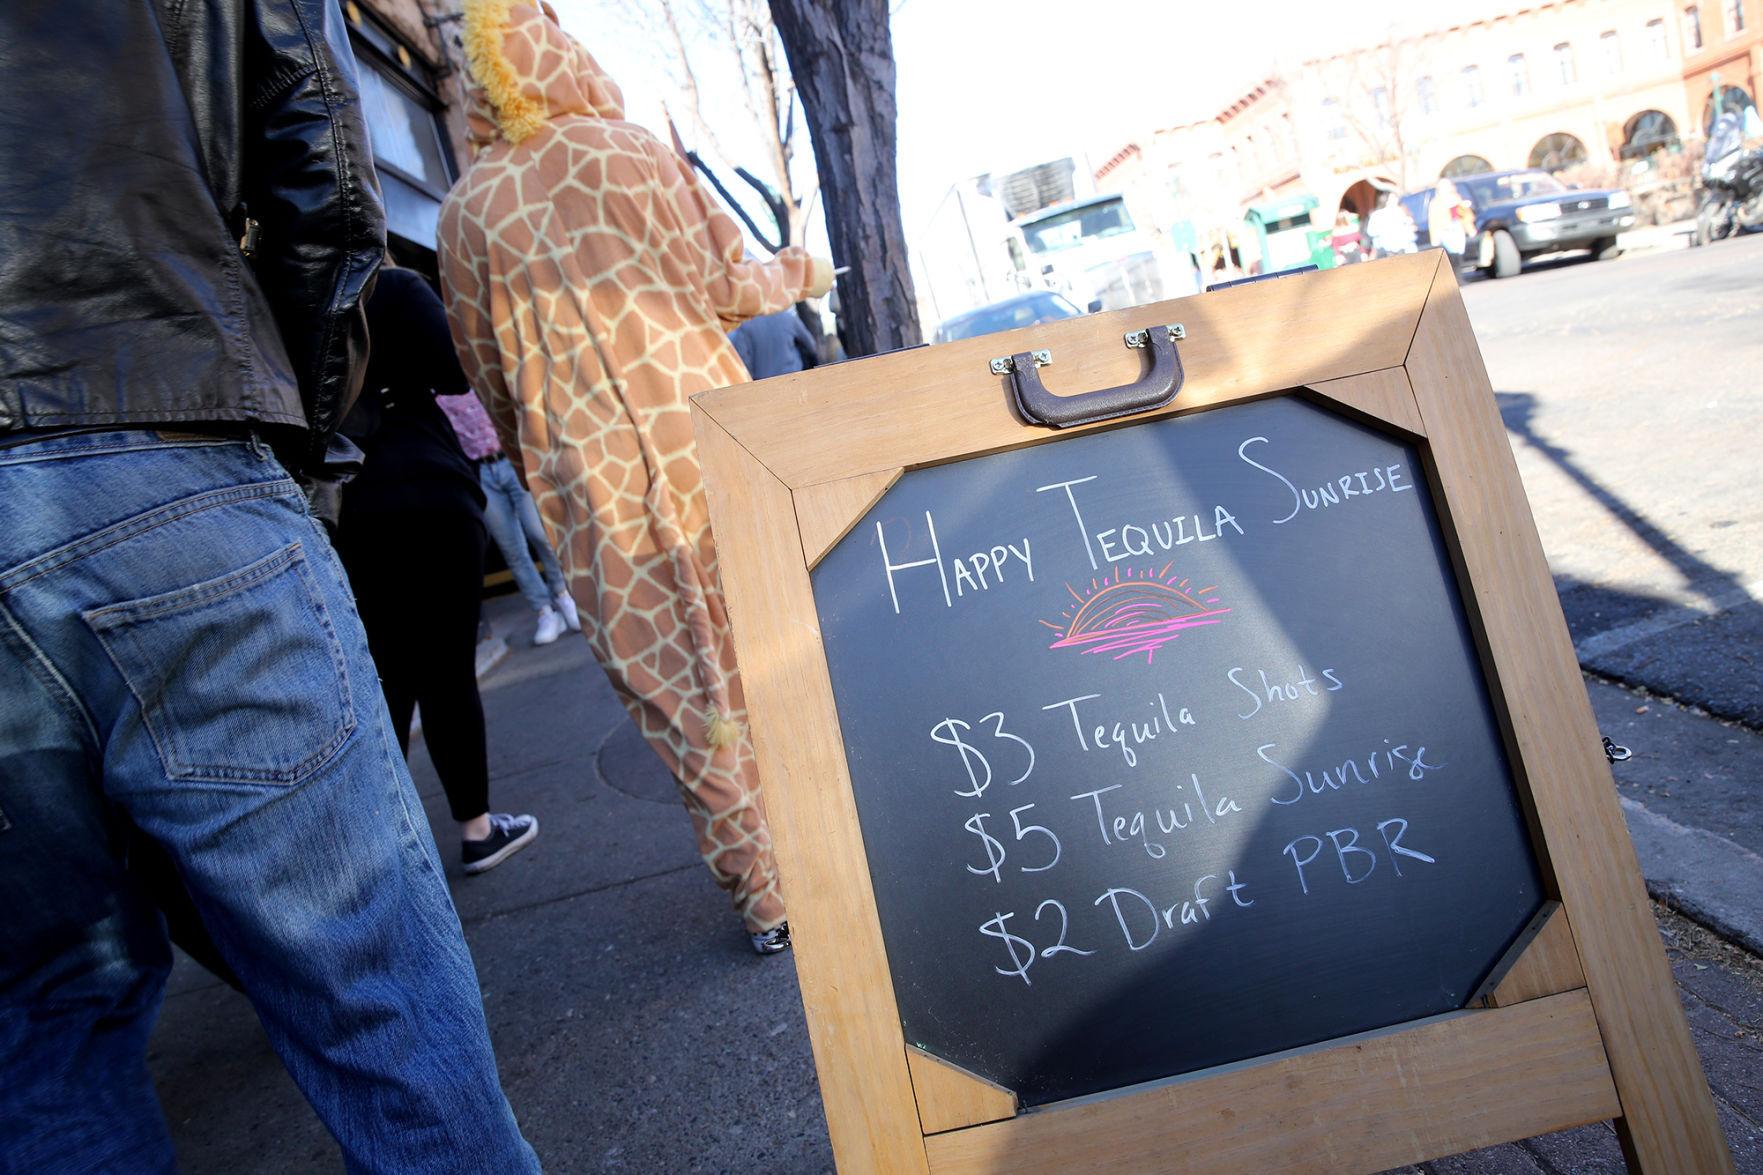 Happy Tequila Sunrise
$3 Tequila Shots
$5 Tequila Sunrise
$2 Draft PBR